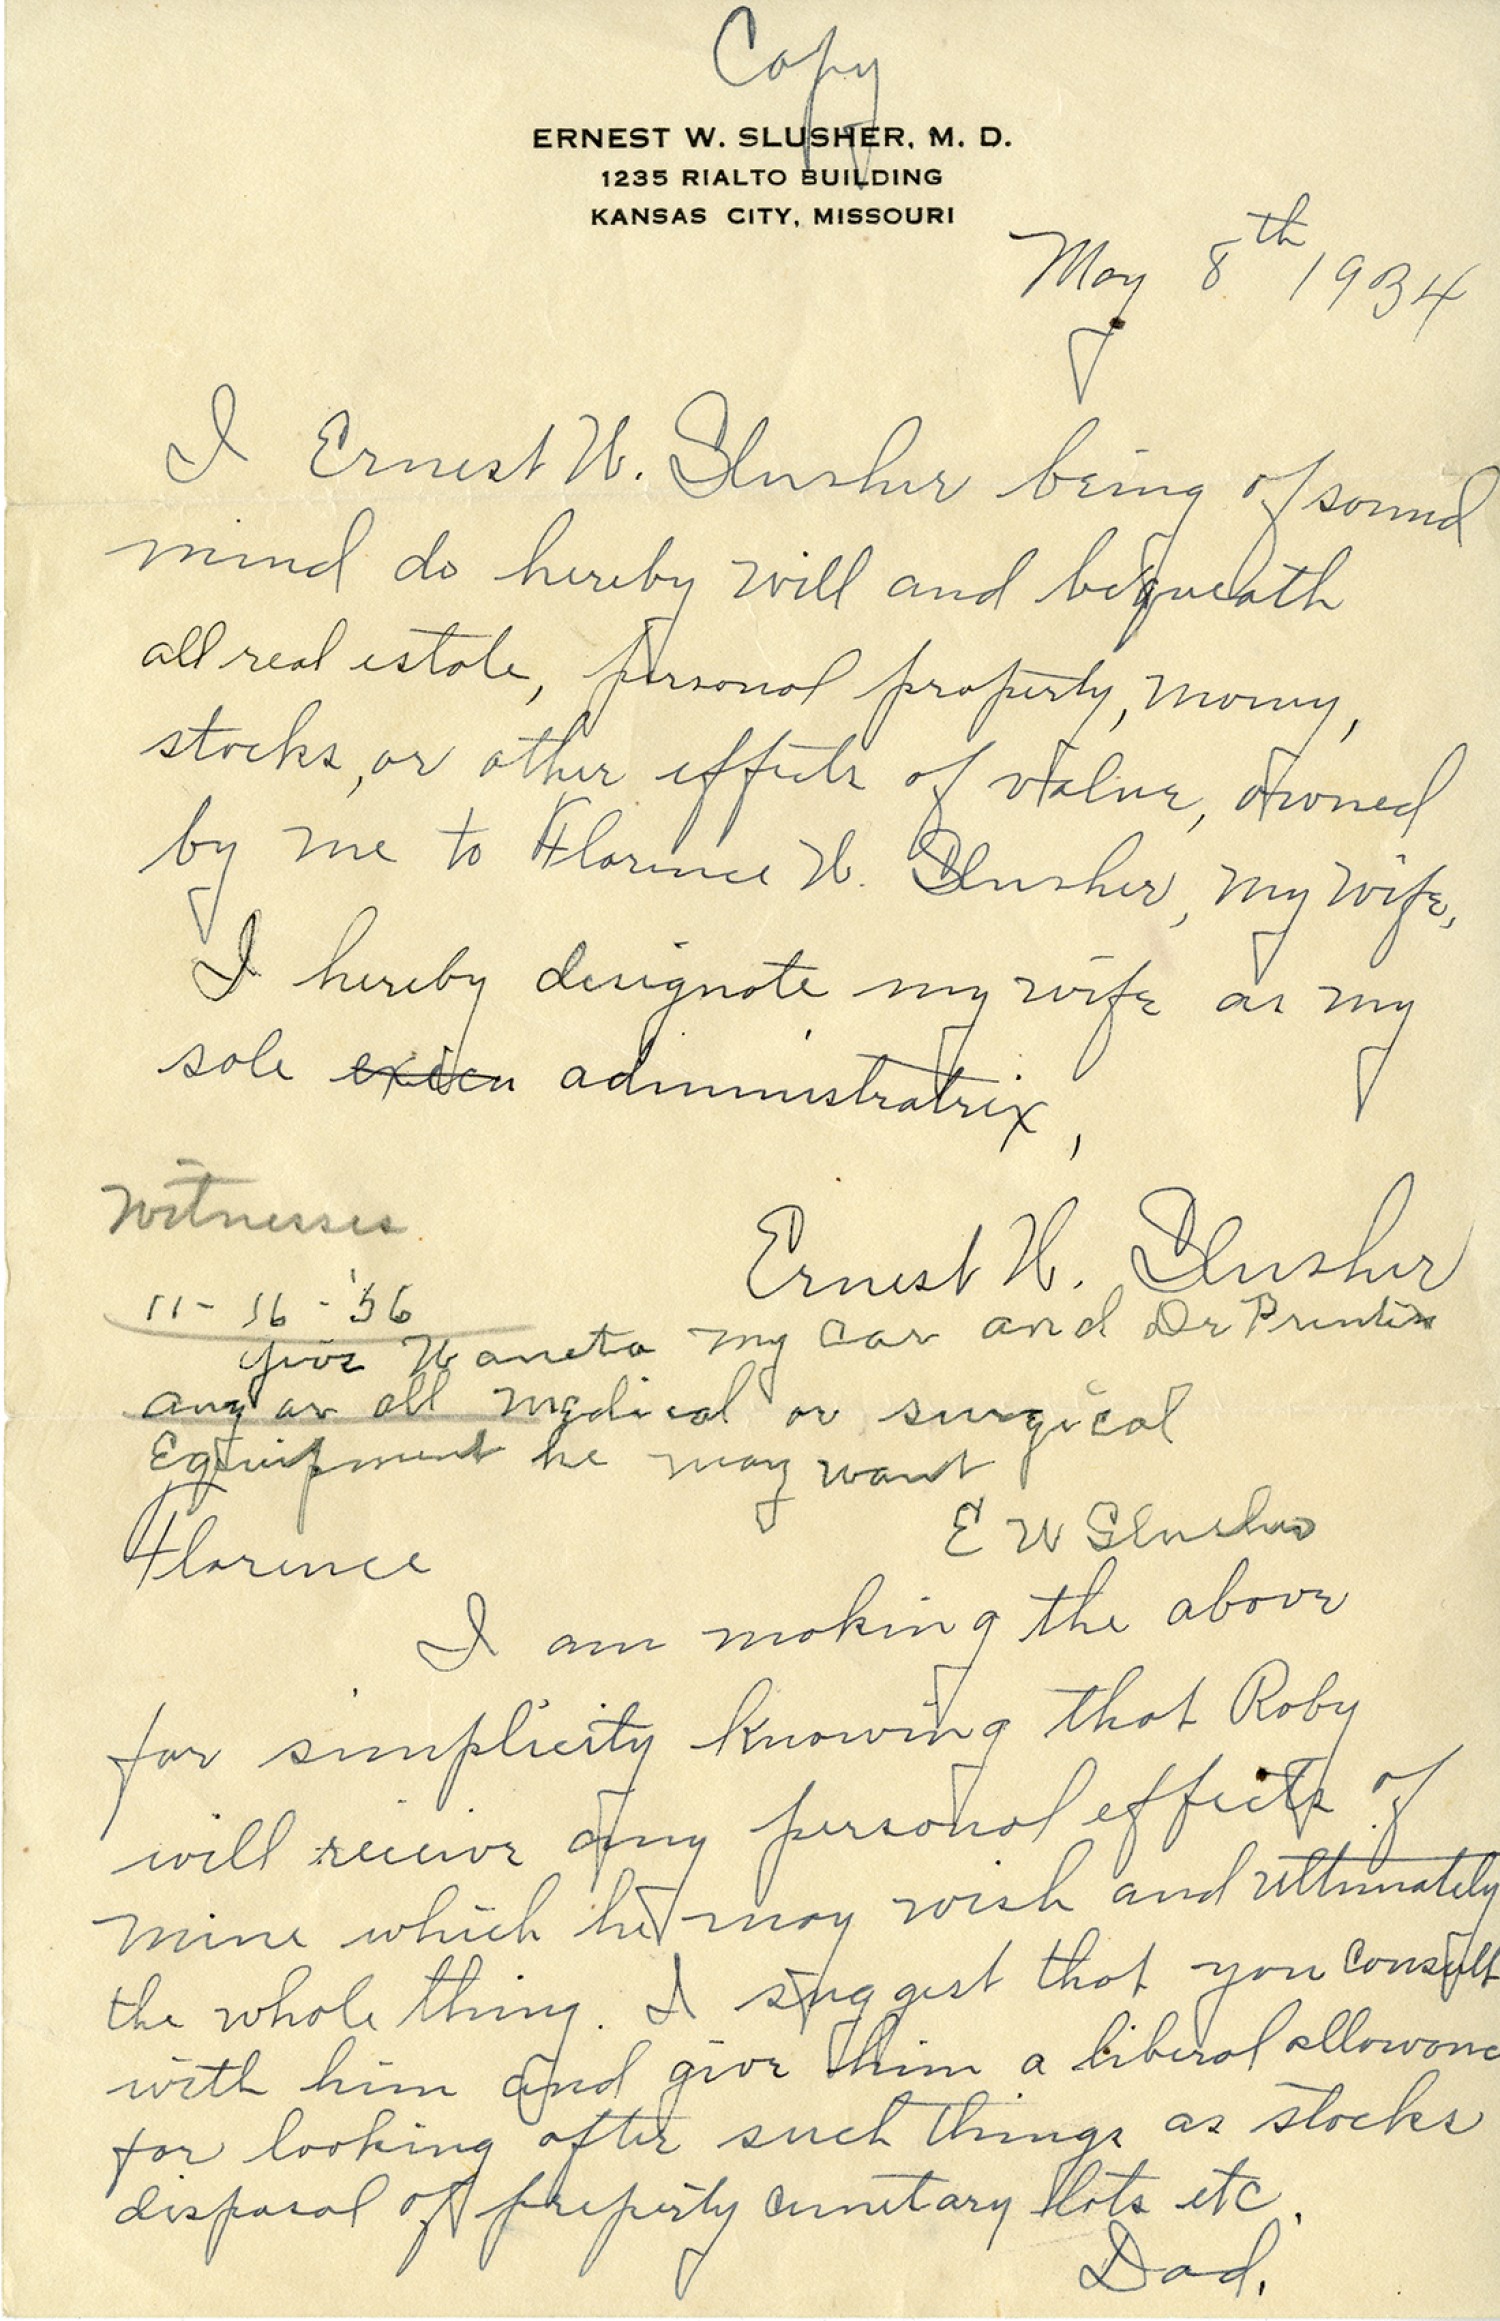 Copy
ERNEST W. SLUSHER, M. D.
1235 RIALTO BUILDING
KANSAS CITY, MISSOURI
May 8th 1934
I Ernest W. Slusher being of sound
mind do hereby will and bequeath
all real estate, personal property, money,
stocks, or other effects of value, owned
by me to Florence W. Slusher, my wife,
I hereby designate my wife as my
sole execu administratrix,
Witnesses
Ernest W. Slusher
11-16-'36
give Waneta my car and Dr Prentiss
any or all medical or surgical
Equipment he may want
E W Slusher
Florence
I am making the above
for simplicity knowing that Roby
will receive any personal effects of
mine which he may wish and ultimately
the whole thing. I suggest that you consult
with him and give him a liberal allowance
for looking after such things as stocks
disposal of property cemetary lots etc.
Dad.